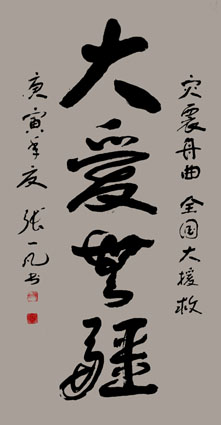 灾震舟曲 全国大援救
大爱無疆
庚寅年夜 张一凡书